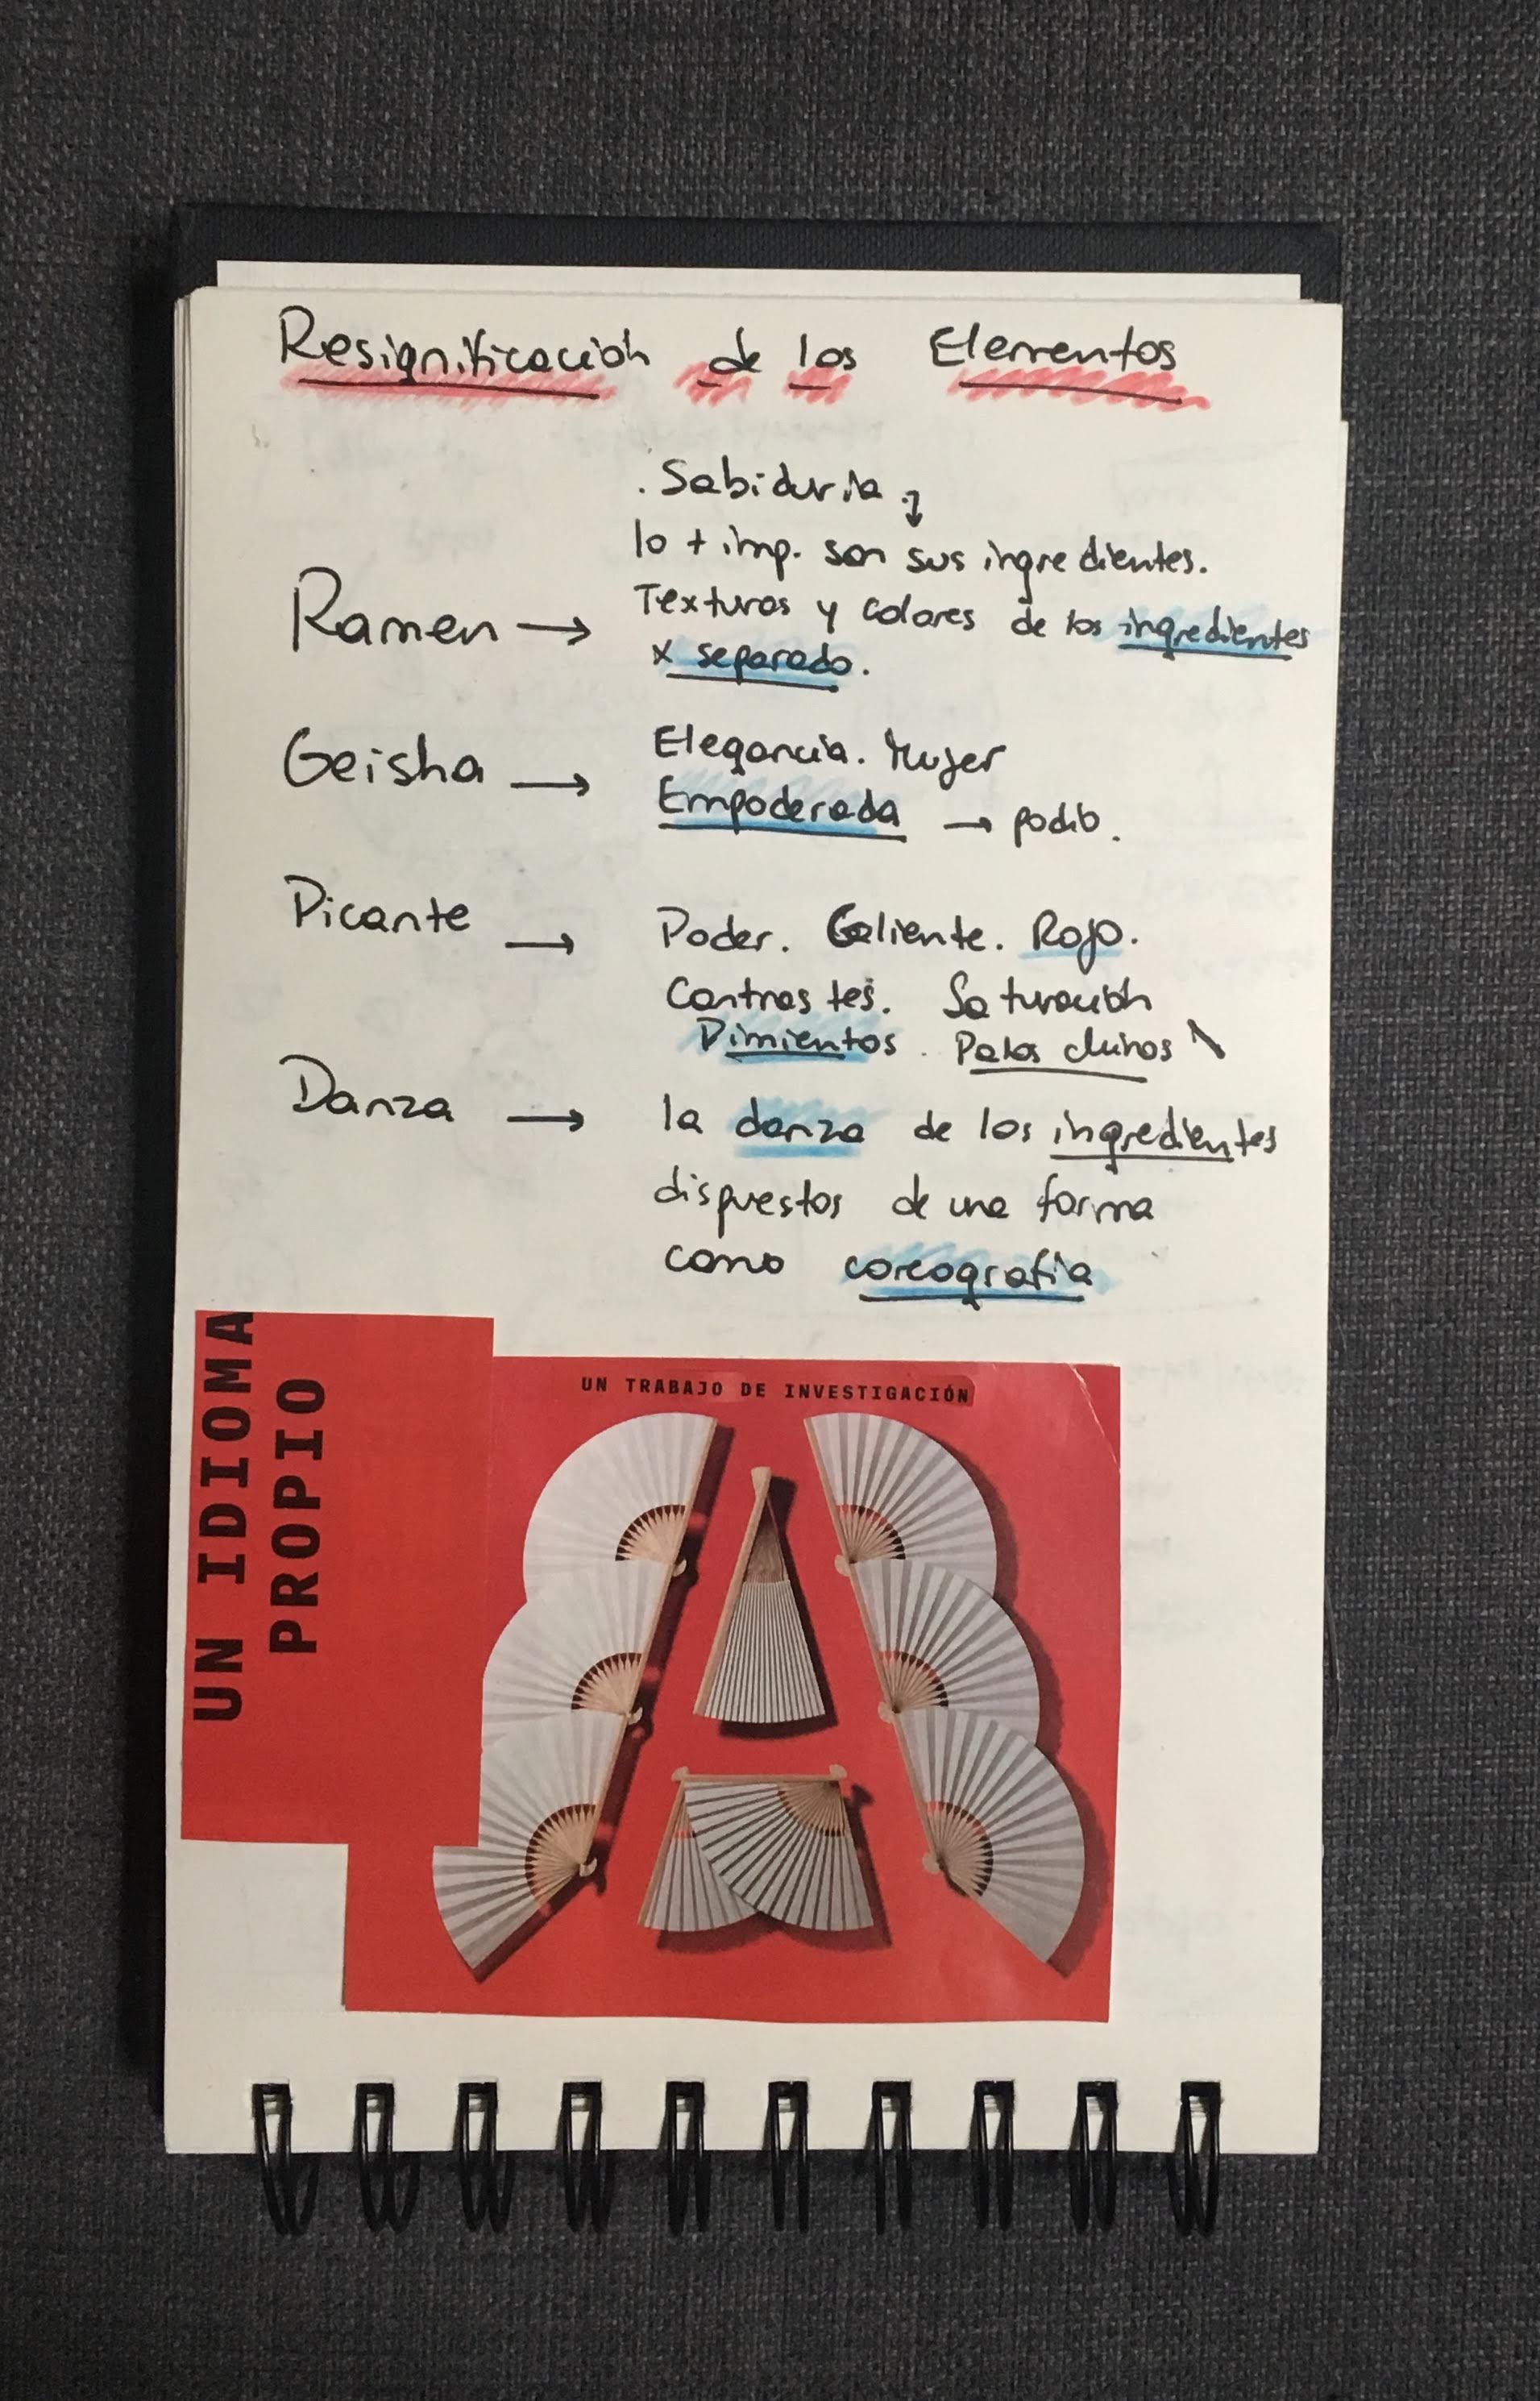 Resignificación de los Elementos
. Sabiduría.
lo + imp. son sus ingredientes.
Ramen → Texturas y colores de los ingredientes
x separado.
Geisha → Elegancia. Mujer
Empoderada → podio.
Picante → Poder. Caliente. Rojo.
Contrastes. Saturación
Pimientos. Palos chinos
Danza → la danza de los ingredientes
dispuestos de una forma
como coreografía
UN IDIOMA
PROPIO
UN TRABAJO DE INVESTIGACIÓN